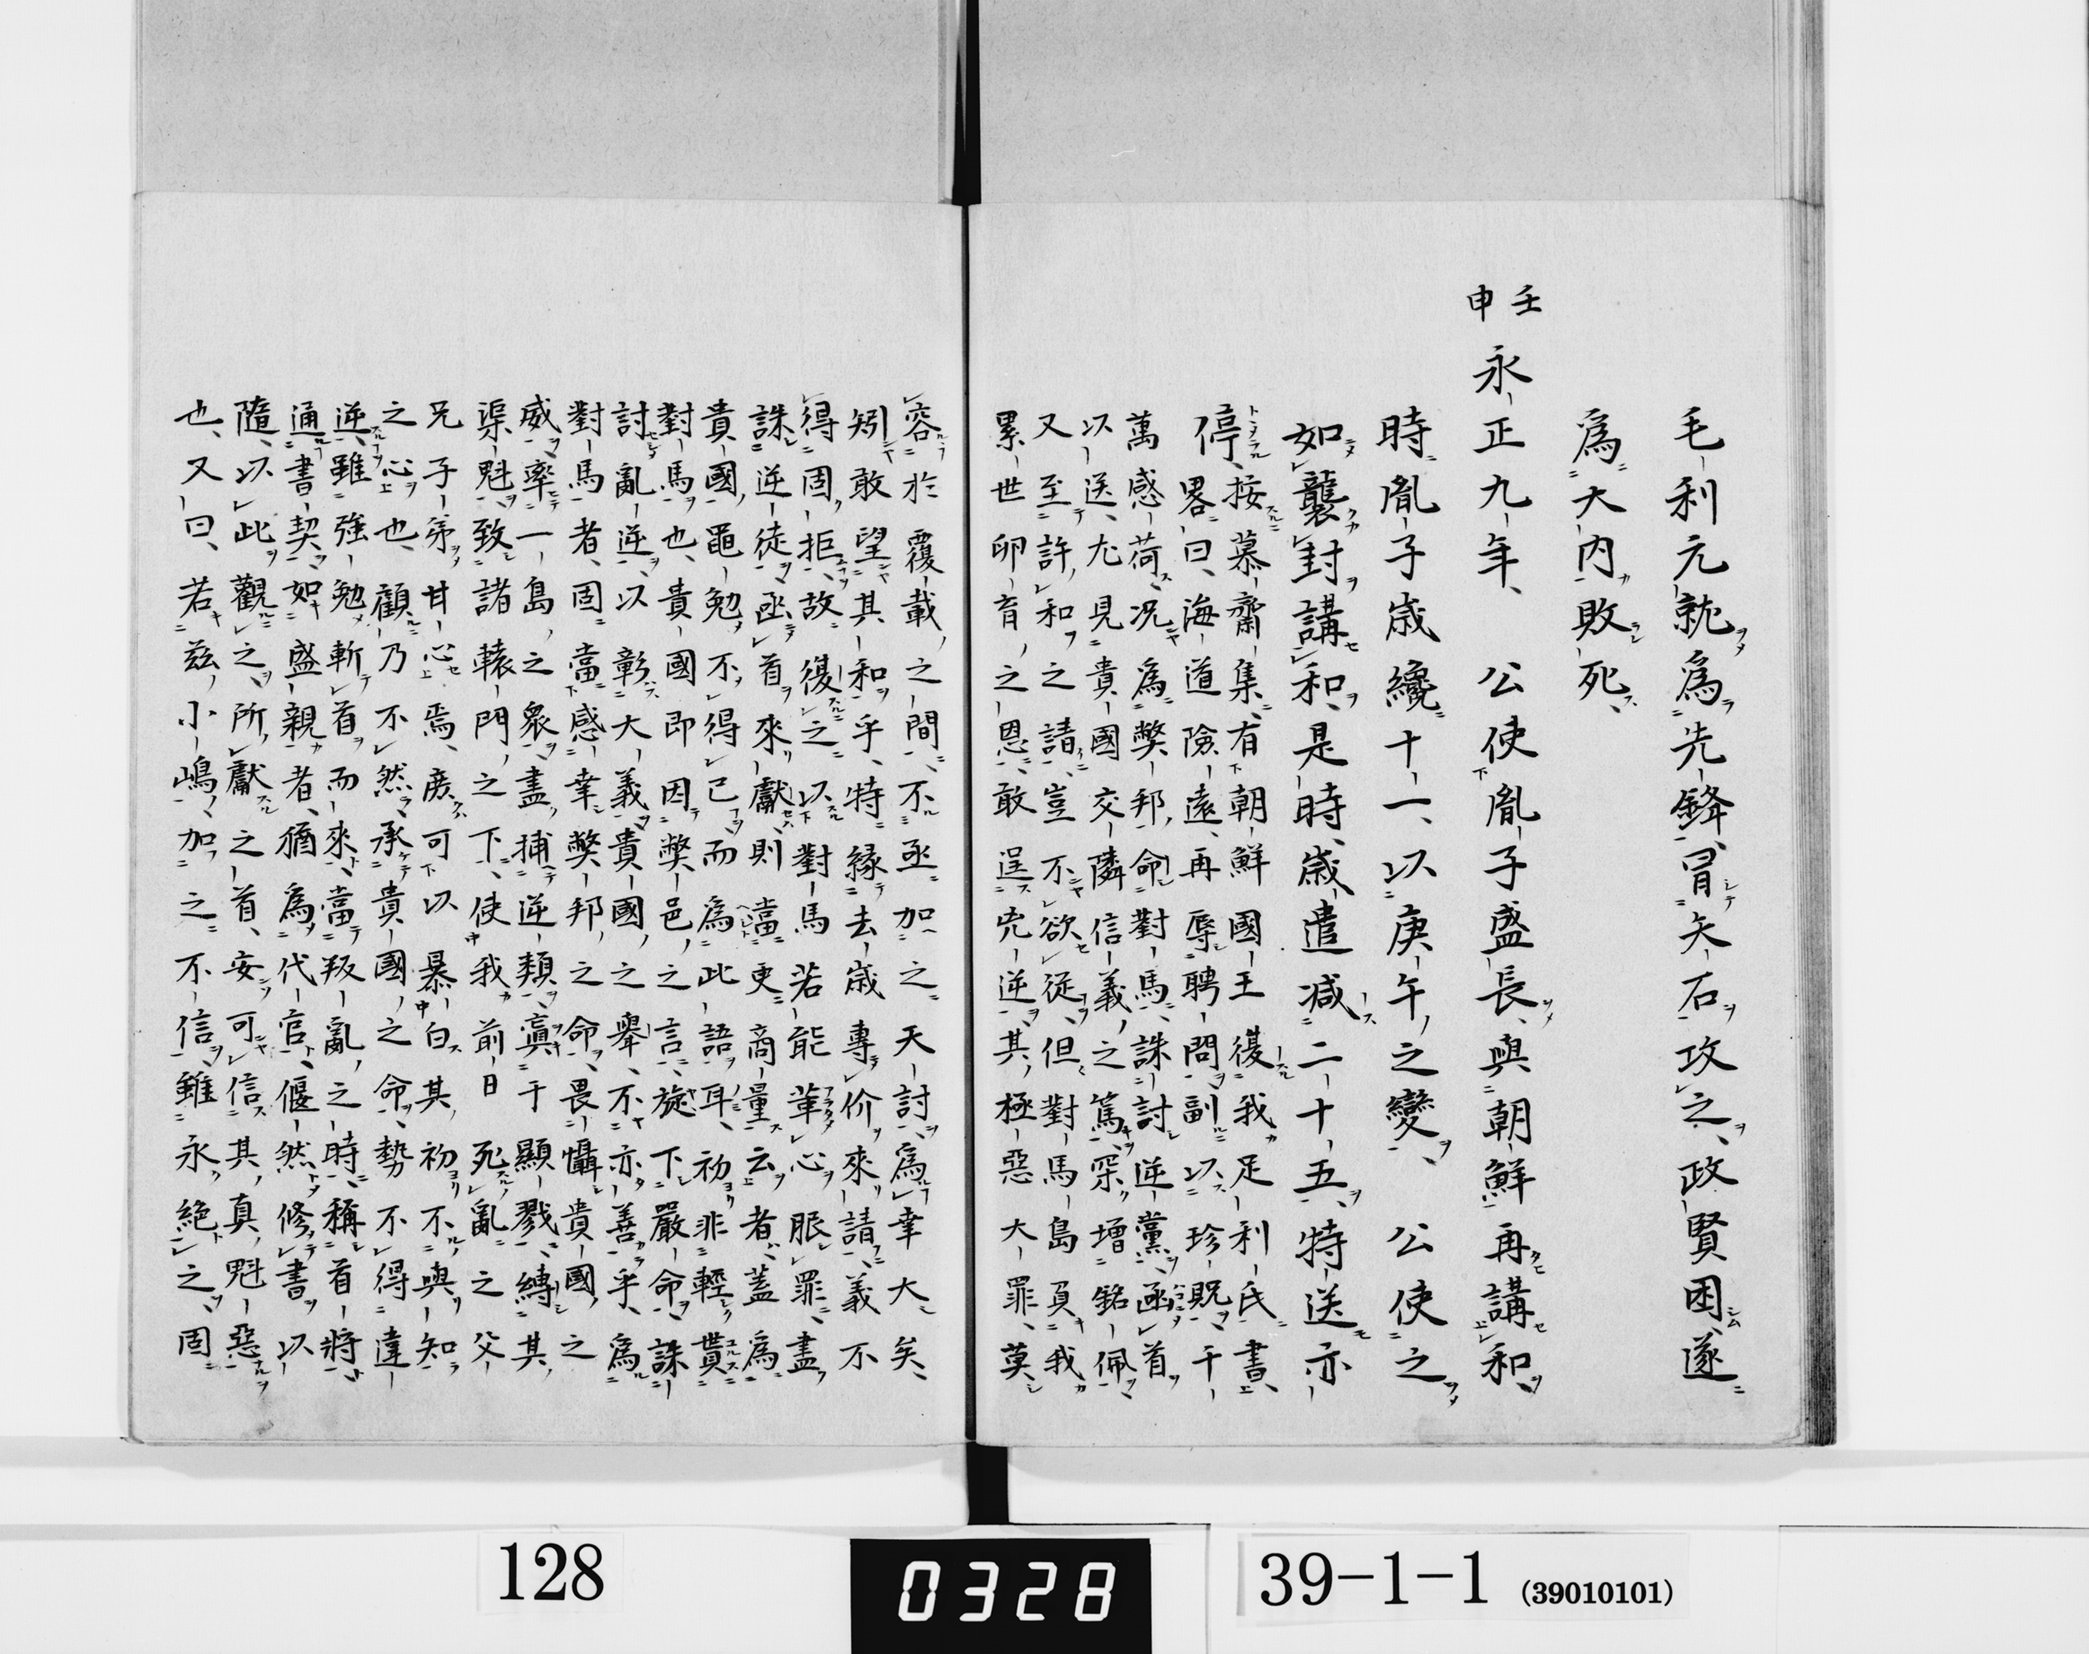 毛利元就爲先鋒冒矢石攻之、政賢困、遂
爲大内敗死、
壬申
永正九年、公使胤子盛長、與朝鮮再講和、
時胤子歳纔十一、以庚午之變、公使之
如襲封講和、是時、歳遣减二十五、特送亦
停、按慕齋集、有朝鮮國王復我足利氏書、
畧曰、海道險遠、再辱聘問、副以珍貺、千
萬感荷、况爲弊邦、命對馬、誅討逆黨、函首
以送、尤見貴國交隣信義之篤、深增銘佩、
又至許和之請、豈不欲從、但對馬島負我
累世卵育之恩、敢逞兇逆、其極惡大罪、莫
容於覆載之間、不亟加之天討、爲幸大矣、
矧敢望其和乎、特緣去歳專价來請、義不
得固拒、故復之以對馬若能革心服罪、盡
誅逆徒、函首來獻、則當更商量云者、蓋爲
貴國、黽勉不得已、而爲此語耳、初非輕貰
對馬也、貴國即因弊邑之言、旋下嚴命、誅
討亂逆、以彰大義、貴國之舉、不亦善乎、爲
對馬者、固當感幸弊邦之命、畏懾貴國之
威、率一島之衆、盡捕逆類、寘于顯戮、縛其
渠魁、致諸轅門之下、使我前日死亂之父
兄子弟甘心焉、庶可以暴白其初不與知
之心也、顧乃不然、承貴國之命、勢不得違
逆、雖強勉斬首而來、當叛亂之時、稱首將
通書契、如盛親者、猶爲代官、偃然修書以
隨、以此觀之、所獻之首、安可信其真魁惡
也、又曰、若玆小嶋、加之不信、雖永絶之、固
128
0328
39-1-1 (39010101)